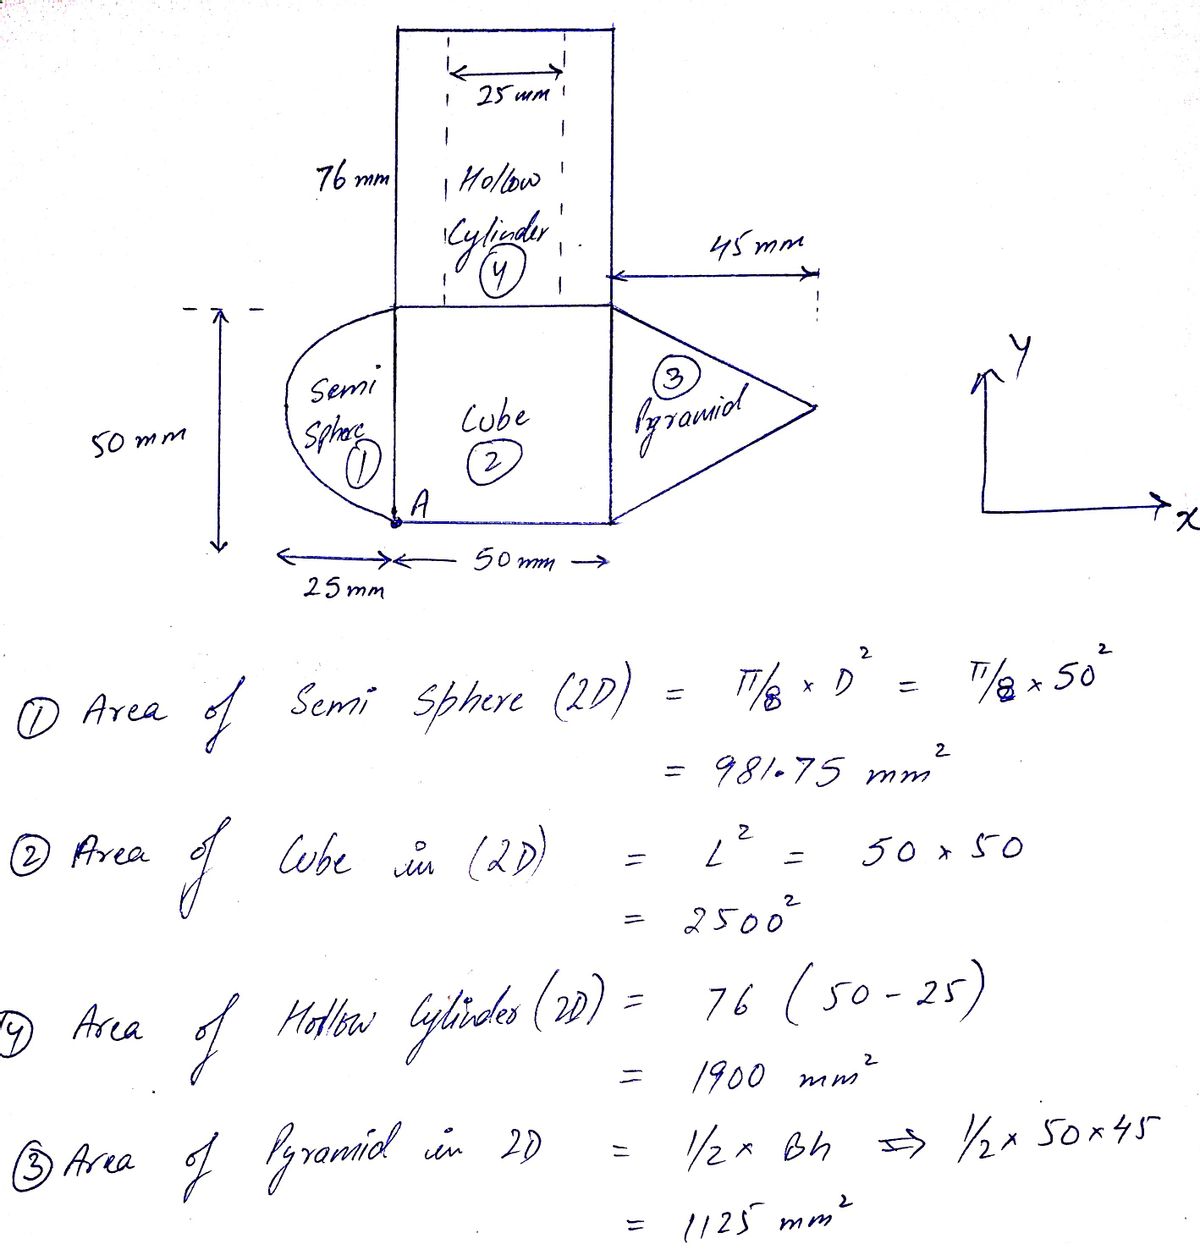 25 mm
76 mm
Hollow
Cylinder
4
45 mm
Y
3
Pyramid
Semi
Sphere
1
Cube
2
50 mm
A
x
50 mm
25 mm
① Area of Semi Sphere (2D) = π/8 × D² = π/8 × 50²
= 981.75 mm²
② Area of Cube in (2D) = L² = 50 × 50
= 2500²
④ Area of Hollow Cylinder (2D) = 76 (50 - 25)
= 1900 mm²
③ Area of Pyramid in 2D = 1/2 × Bh ⇒ 1/2 × 50 × 45
= 1125 mm²